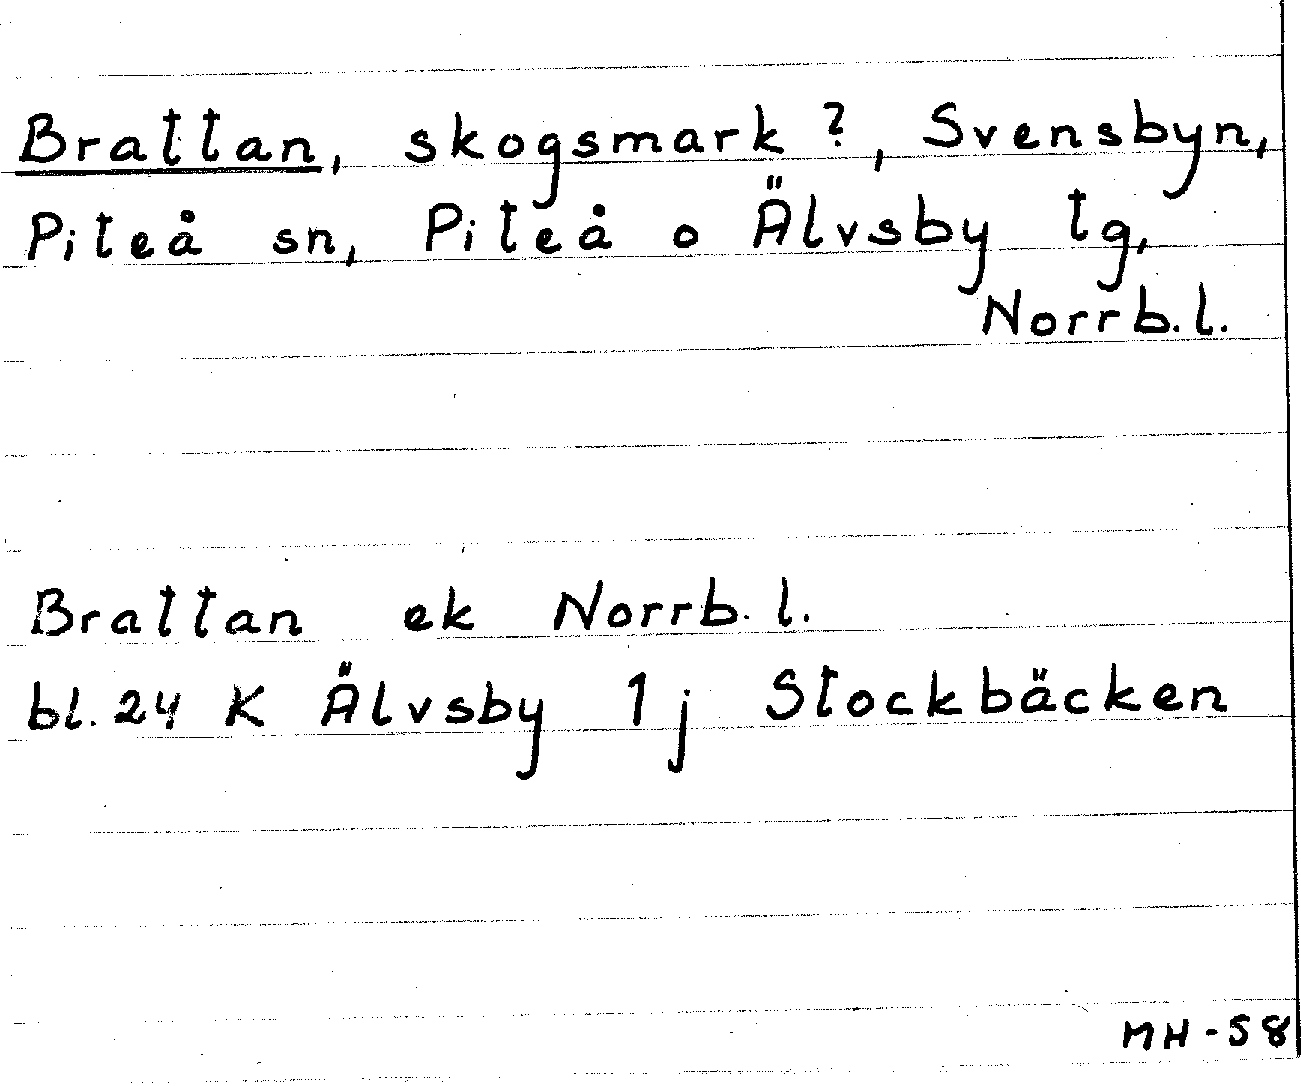 Brattan, skogsmark?, Svensbyn,
Piteå sn, Piteå o Älvsby tg,
Norrb.l.
Brattan ek Norrb.l.
bl.24 K Älvsby 1j Stockbäcken
MH-58